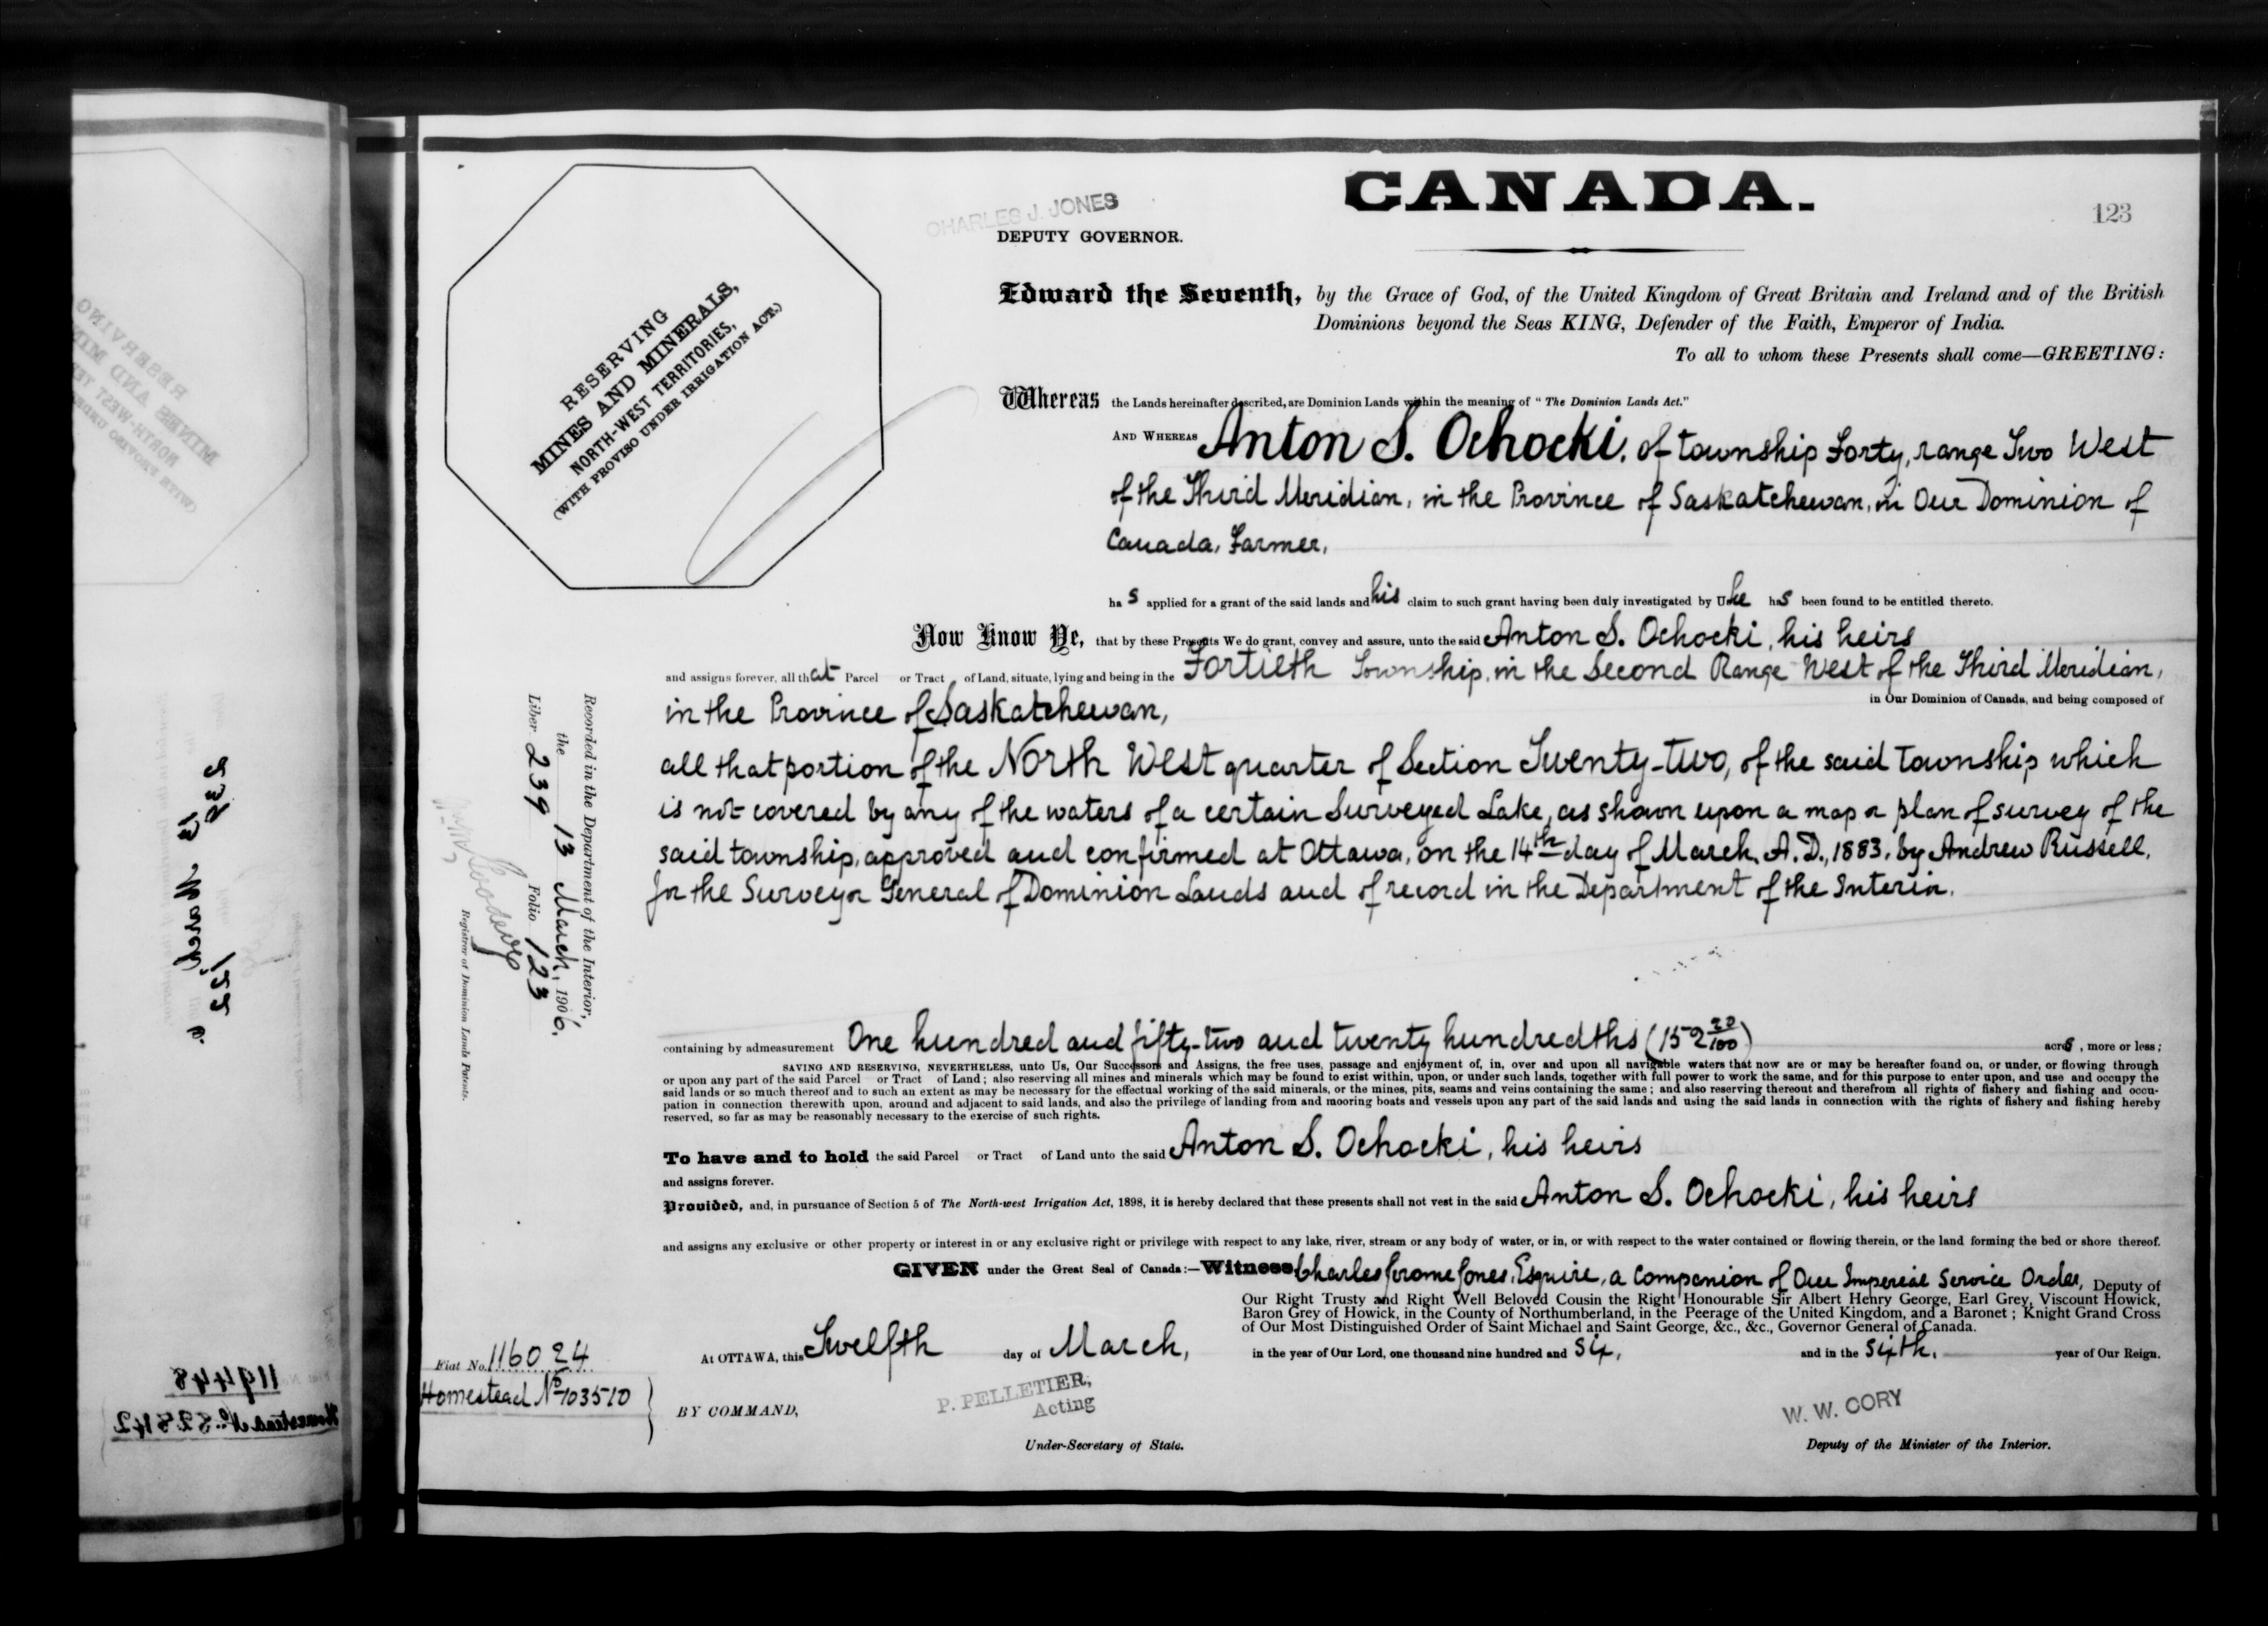 CANADA.
123
CHARLES J. JONES
DEPUTY GOVERNOR.
RESERVING
MINES AND MINERALS,
NORTH-WEST TERRITORIES,
(WITH PROVISO UNDER IRRIGATION ACT.)
Edward the Seventh, by the Grace of God, of the United Kingdom of Great Britain and Ireland and of the British
Dominions beyond the Seas KING, Defender of the Faith, Emperor of India.
To all to whom these Presents shall come—GREETING:
Whereas the Lands hereinafter described, are Dominion Lands within the meaning of "The Dominion Lands Act."
AND WHEREAS Anton S. Ochocki, of township Forty, range Two West
of the Third Meridian, in the Province of Saskatchewan, in Our Dominion of
Canada, Farmer,
has applied for a grant of the said lands and his claim to such grant having been duly investigated by U he has been found to be entitled thereto.
Now Know Ye, that by these Presents We do grant, convey and assure, unto the said Anton S. Ochocki, his heirs
and assigns forever, all that Parcel or Tract of Land, situate, lying and being in the Fortieth Township, in the Second Range West of the Third Meridian,
in the Province of Saskatchewan, in Our Dominion of Canada, and being composed of
all that portion of the North West quarter of Section Twenty-two, of the said township which
is not covered by any of the waters of a certain Surveyed Lake, as shown upon a map or plan of survey of the
said township, approved and confirmed at Ottawa, on the 14th day of March, A.D., 1883, by Andrew Russell,
for the Surveyor General of Dominion Lands and of record in the Department of the Interior.
containing by admeasurement One hundred and fifty-two and twenty hundredths (152 20/100) acres, more or less;
SAVING AND RESERVING, NEVERTHELESS, unto Us, Our Successors and Assigns, the free uses, passage and enjoyment of, in, over and upon all navigable waters that now are or may be hereafter found on, or under, or flowing through
or upon any part of the said Parcel or Tract of Land; also reserving all mines and minerals which may be found to exist within, upon, or under such lands, together with full power to work the same, and for this purpose to enter upon, and use and occupy the
said lands or so much thereof and to such an extent as may be necessary for the effectual working of the said minerals, or the mines, pits, seams and veins containing the same; and also reserving thereout and therefrom all rights of fishery and fishing and occu-
pation in connection therewith upon, around and adjacent to said lands, and also the privilege of landing from and mooring boats and vessels upon any part of the said lands and using the said lands in connection with the rights of fishery and fishing hereby
reserved, so far as may be reasonably necessary to the exercise of such rights.
To have and to hold the said Parcel or Tract of Land unto the said Anton S. Ochocki, his heirs
and assigns forever.
Provided, and, in pursuance of Section 5 of The North-west Irrigation Act, 1898, it is hereby declared that these presents shall not vest in the said Anton S. Ochocki, his heirs
and assigns any exclusive or other property or interest in or any exclusive right or privilege with respect to any lake, river, stream or any body of water, or in, or with respect to the water contained or flowing therein, or the land forming the bed or shore thereof.
GIVEN under the Great Seal of Canada:—Witness Charles Jerome Jones, Esquire, a Companion of Our Imperial Service Order, Deputy of
Our Right Trusty and Right Well Beloved Cousin the Right Honourable Sir Albert Henry George, Earl Grey, Viscount Howick,
Baron Grey of Howick, in the County of Northumberland, in the Peerage of the United Kingdom, and a Baronet; Knight Grand Cross
of Our Most Distinguished Order of Saint Michael and Saint George, &c., &c., Governor General of Canada.
At OTTAWA, this Twelfth day of March, in the year of Our Lord, one thousand nine hundred and six, and in the sixth, year of Our Reign.
BY COMMAND,
P. PELLETIER,
Acting
Under-Secretary of State.
W. W. CORY
Deputy of the Minister of the Interior.
Fiat No. 116024
Homestead No 103510
Recorded in the Department of the Interior,
the 13 March, 1906.
Liber 239 Folio 123
Registrar of Dominion Lands Patents.
239
13 March
122
119448
Homestead No.